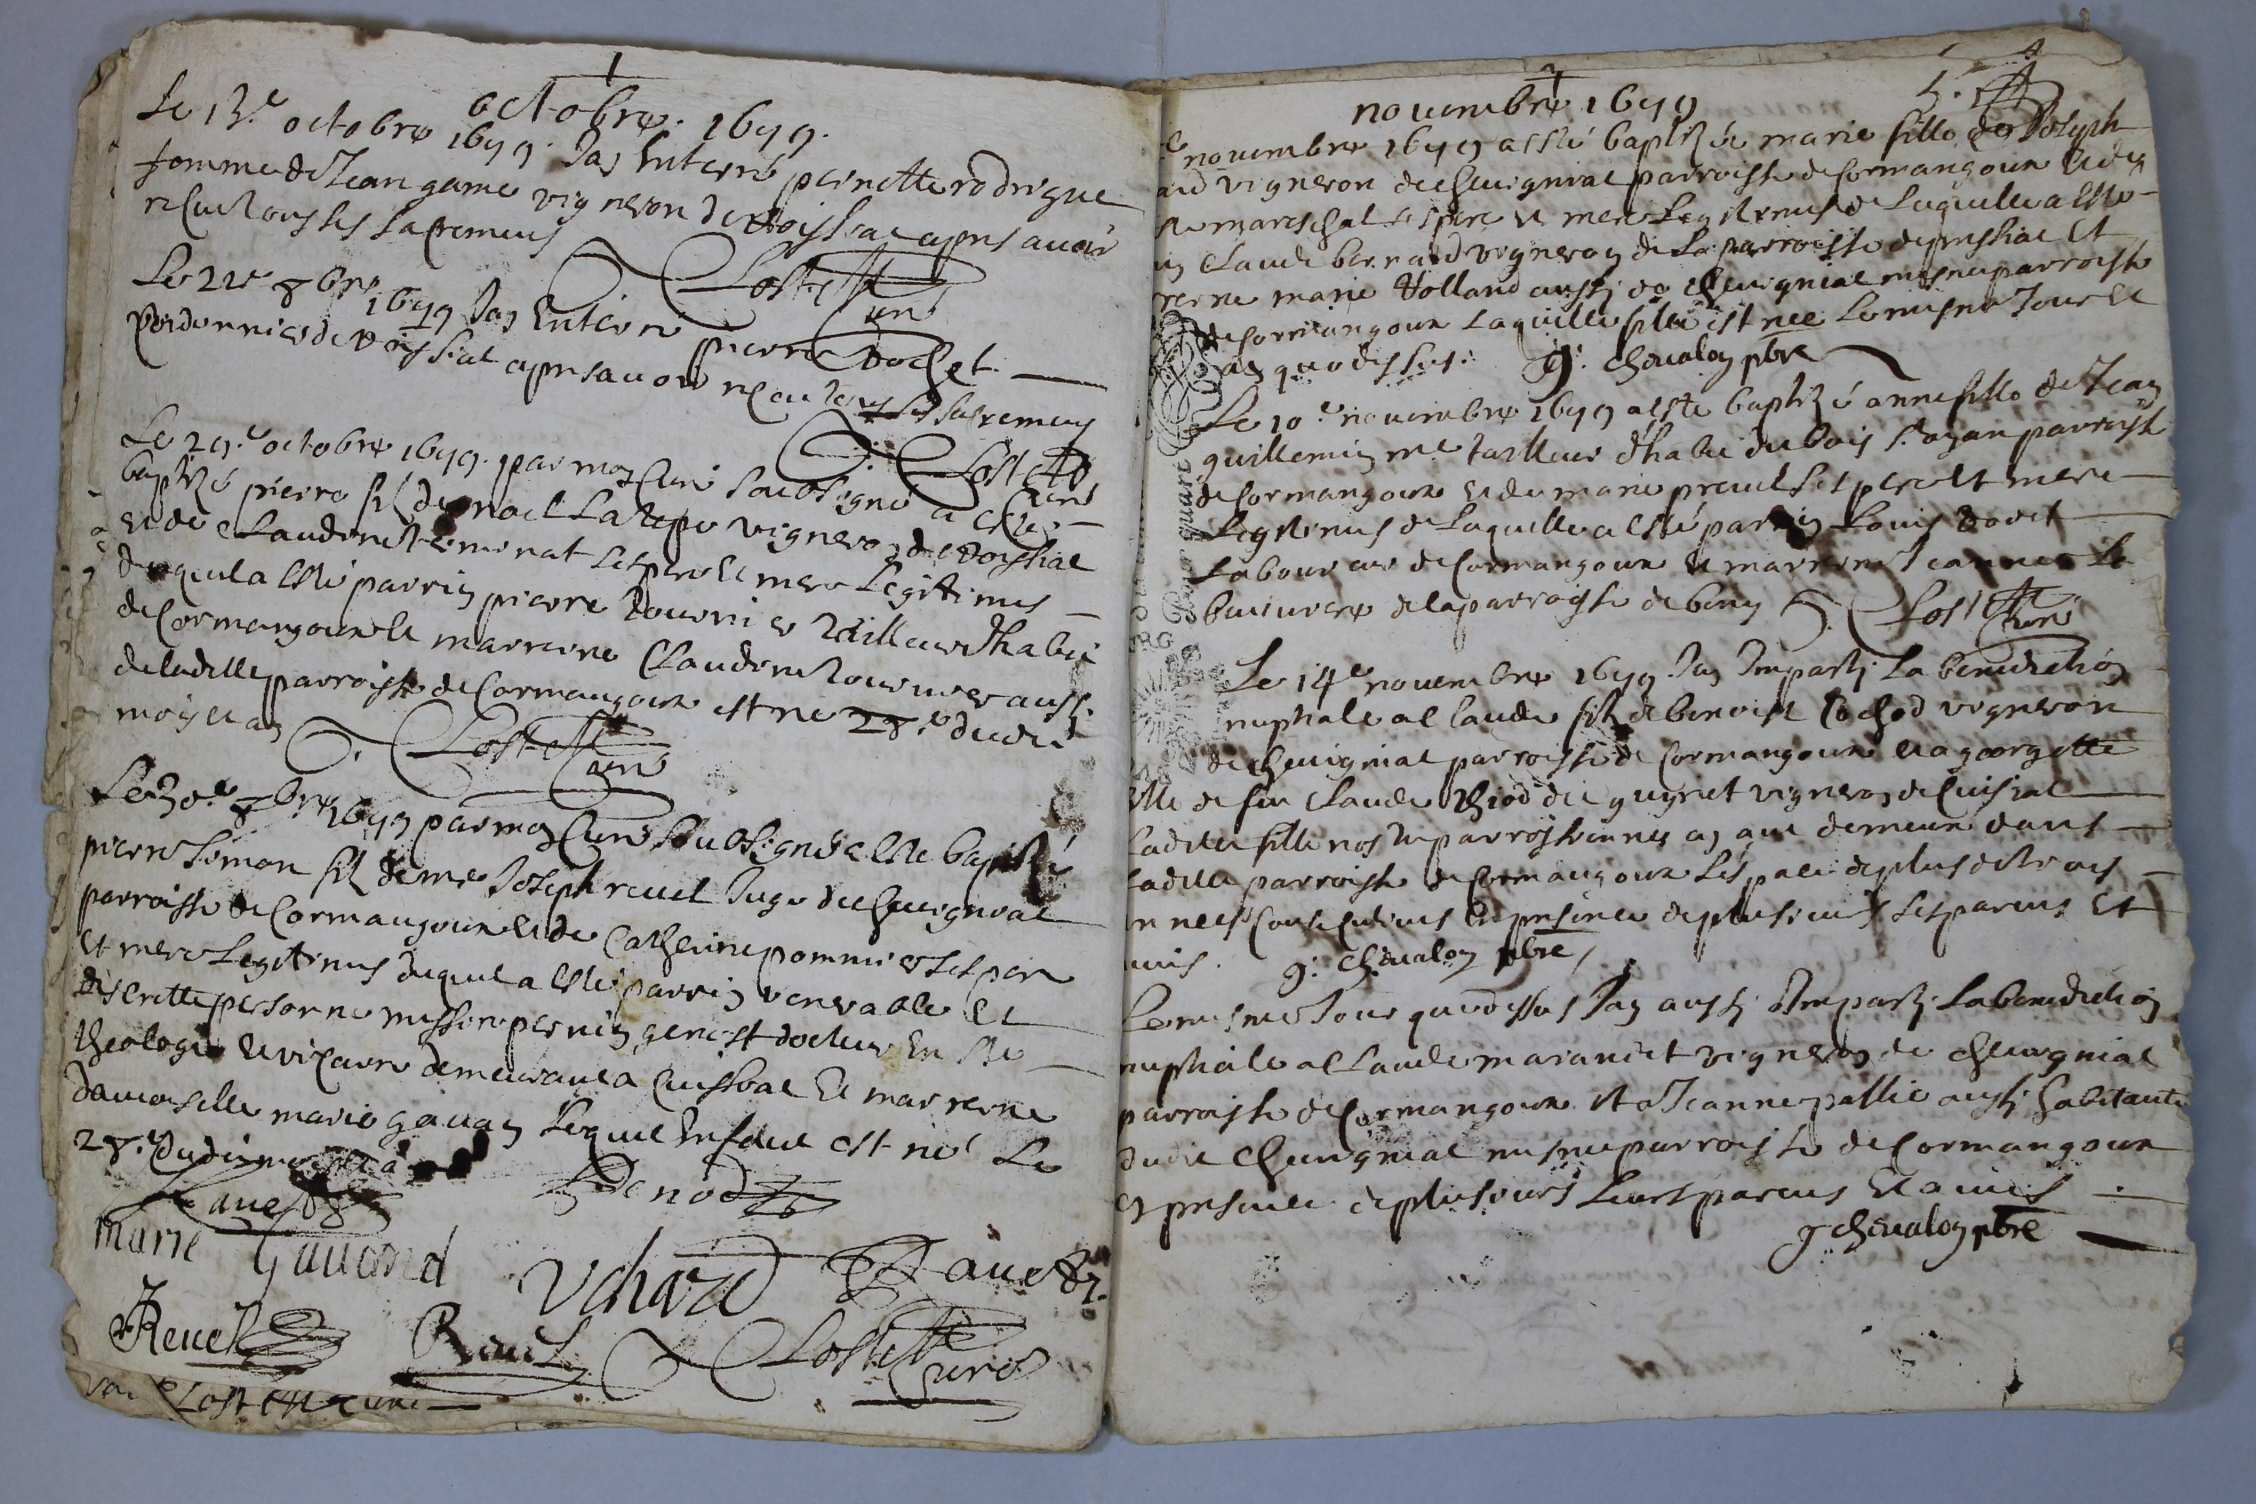 octobre. 1699.
Le 13.e octobre 1699. Jay Enterré pernette rodrigue
femme de Jean game vigneron de Voissiac apres avoir
receu tous les sacremens
Costett
Curé
Le 22e 8bre 1699 Jay Enterré pierre Vochet
Cordonnier de Voissiat apres avoir receu tous les sacremens
Costett
Curé
Le 29.e octobre 1699. par moy Curé soubsigné a esté
baptizé pierre filz de noel La vigneron de Voissiat
et de Claudine monat ses pere et mere Legitimes
duquel a esté parrin pierre tailleur d'habit
de Cormangoux et marreine Claudine aussi
de laditte parroisse de Cormangoux est né 28.e dudit
mois et an
Costett
curé
Le 30.e 8bre 1699 par moy Curé soubsigné a este baptizé
pierre Simon filz de me Joseph revel Juge de Chevigniat
parroisse de Cormangoux et de Catherine pommier ses pere
et mere Legitimes duquel a esté parrin venerable et
discrette personne messire pernin genest docteur En Ste
theologie et vicaire demeurant a Cuissiat Et marreine
damoiselle marie gavan Lequel Enfant est né Le
28.e dudit
marie Gavand
Uchard
JRevel
Revel
Costett
curé
Costett curé
novembre 1699
novembre 1699 a esté baptizée marie fille de Joseph
vigneron de Chevigniat parroisse de Cormangoux et de
mareschal ses pere et mere Legitimes de Laquelle a esté
Claude bernard vigneron de La parroisse de pressiat Et
marie Volland aussi de Chevigniat mesme parroisse
de Cormangoux Laquelle fille est née Le mesme Jour et
an que dessus. g. chevalon pbre
Le 10.e novembre 1699 a este baptizé anne fille de Jean
guillemin me tailleur d'habit du bois parroisse
de Cormangoux et de marie preuel ses pere et mere
Legitimes de Laquelle a esté parrin Louis Vovet
Laboureur de Cormangoux et marreine Jeanne La
de la parroisse de beny Costett
Curé
Le 14.e novembre 1699. Jay Imparti La benediction
nuptiale a Claude filz de benoist Cochod vigneron
de Chevigniat parroisse de Cormangoux et a georgette
fille de feu Claude thiod dit guyriet vigneron de Cuisiat
Ladite fille nostre parroissienne ayant demeuré dans
Ladite parroisse de Cormangoux Lespace de plus de trois
années Consecutives En presence de plusieurs ses parens Et
amis. g. chevalon pbre
Le mesme Jour que dessus Jay aussi Imparti La benediction
nuptiale a Claude marandet vigneron de Chevigniat
parroisse de Cormangoux et a Jeanne pallie aussi habitante
dudit Chevigniat mesme parroisse de Cormangoux
En presence de plusieurs Leurs parens Et amis
g chevalon pbre